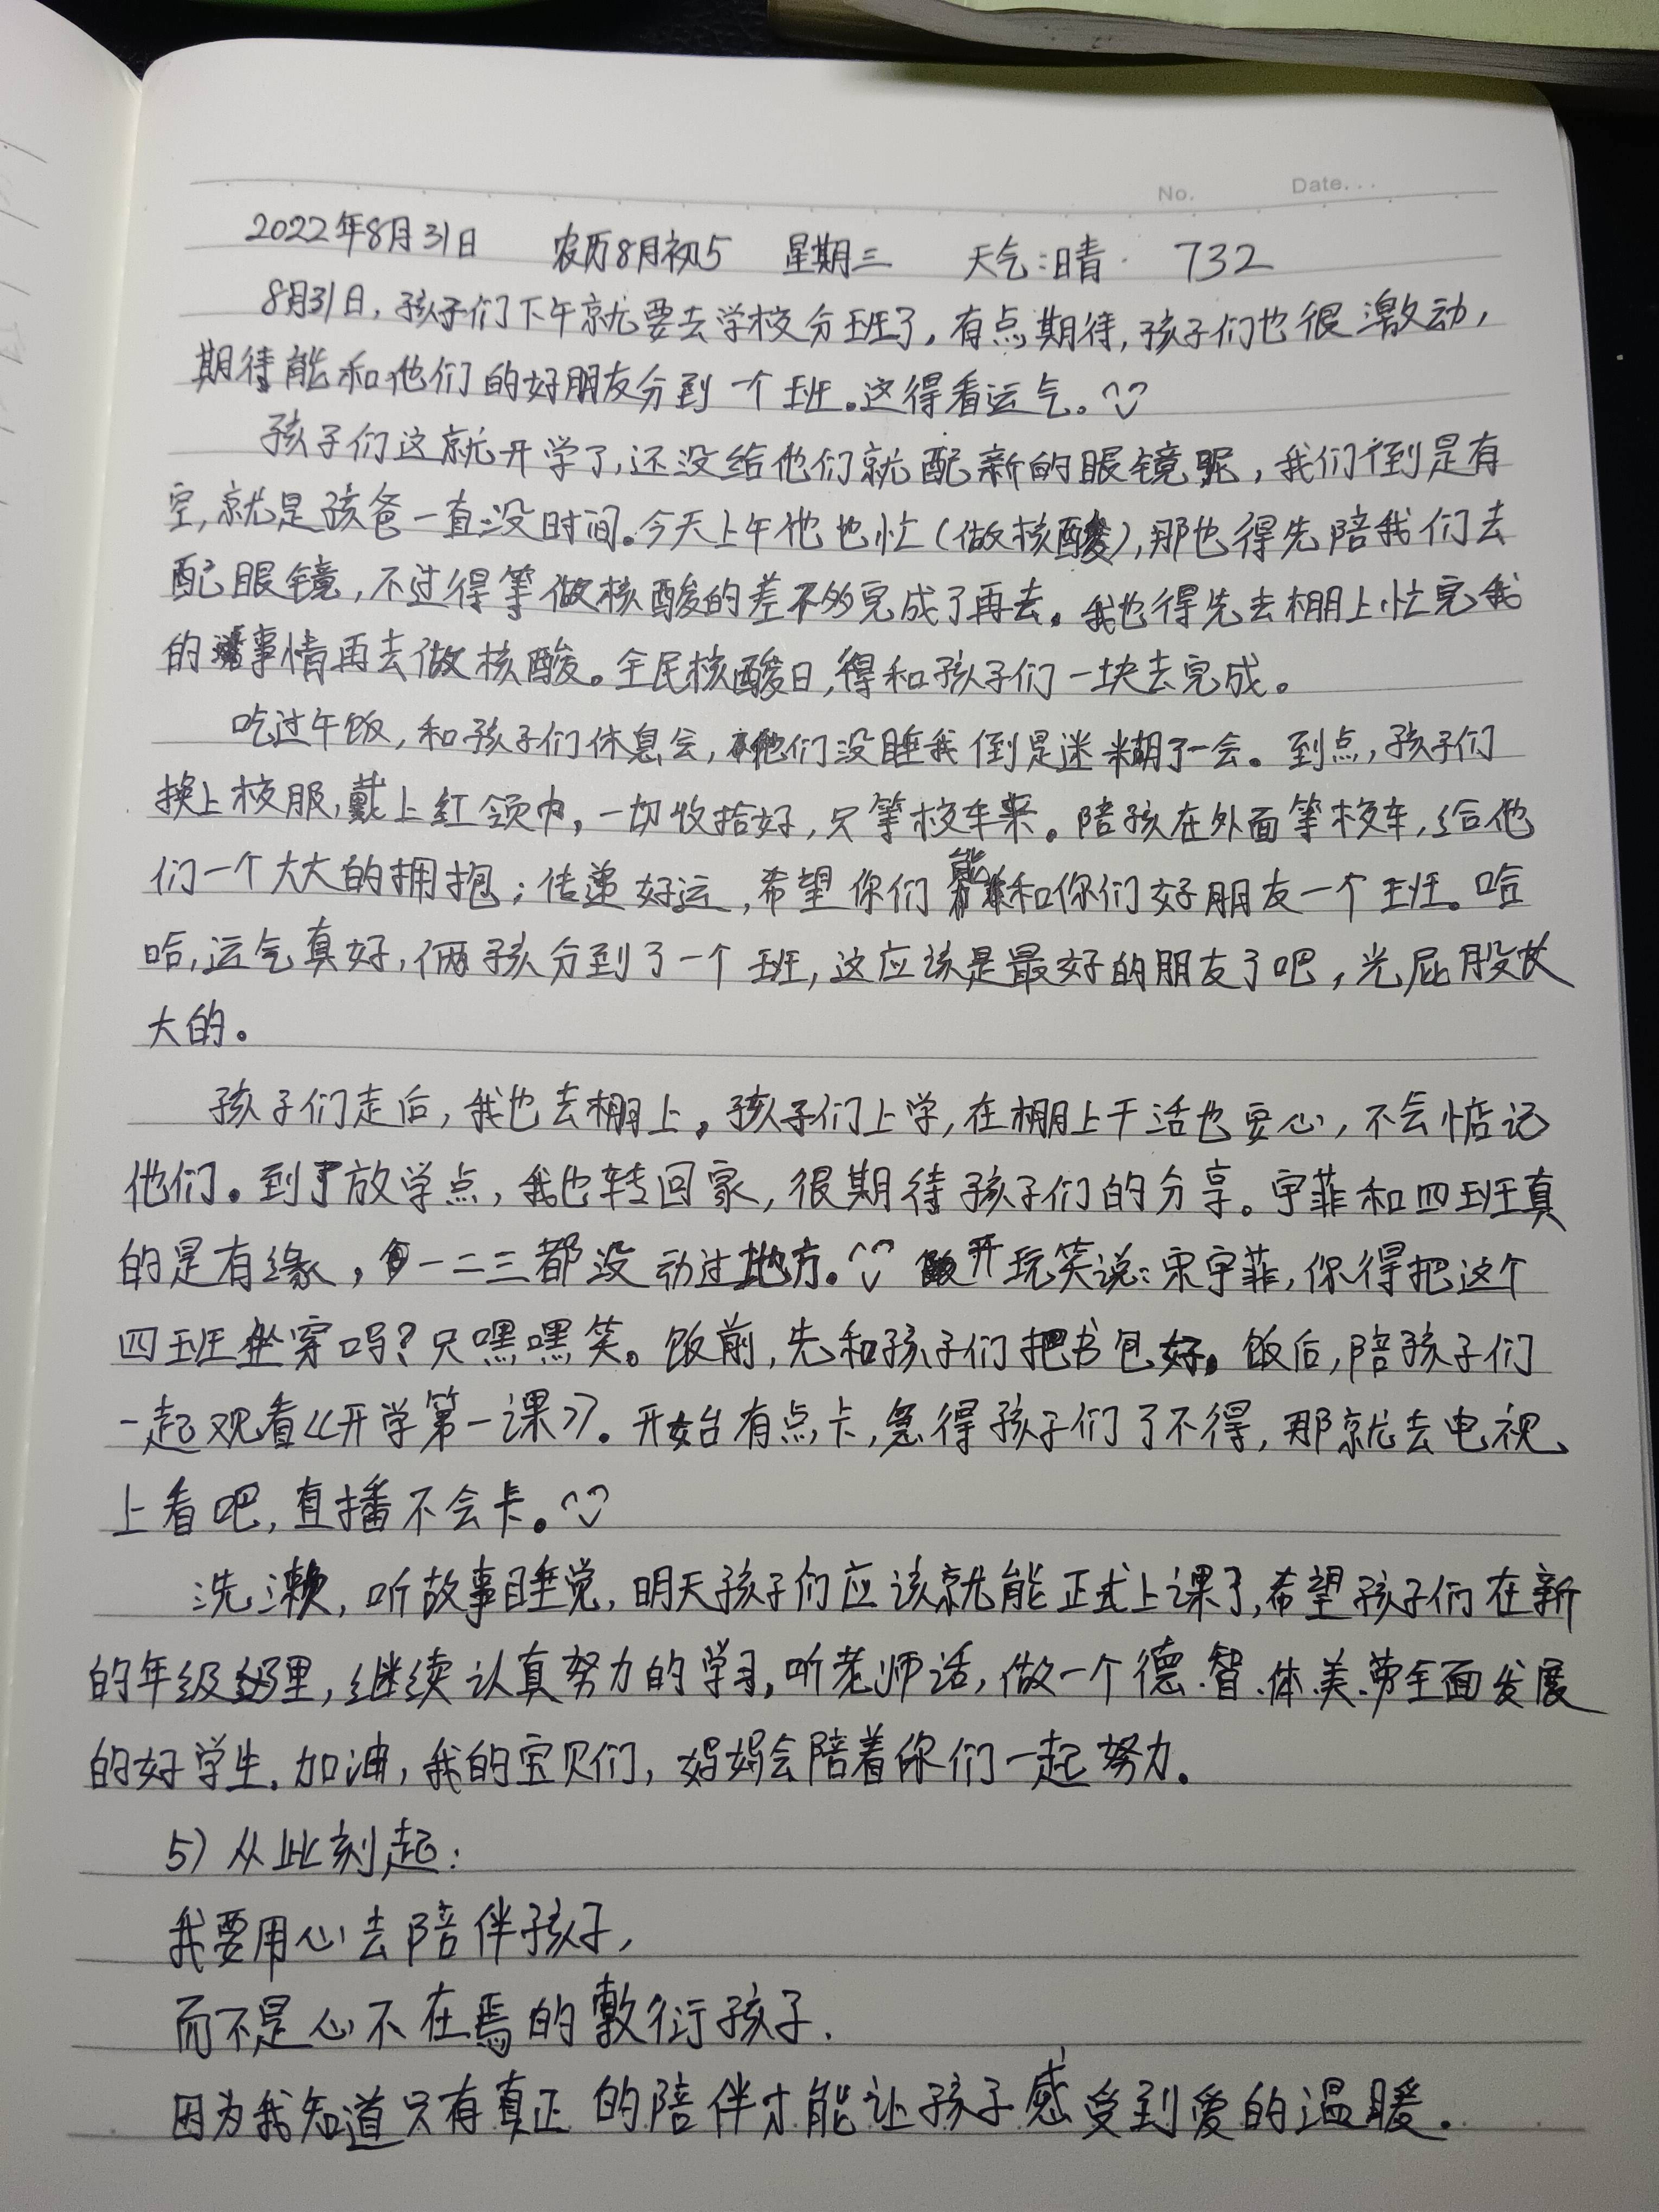 No. Date...
2022年8月31日 农历8月初5 星期三 天气:晴. 732
8月31日,孩子们下午就要去学校分班了,有点期待,孩子们也很激动,
期待能和他们的好朋友分到一个班。这得看运气。
孩子们这就开学了,还没给他们就配新的眼镜呢,我们倒是有
空,就是孩爸一直没时间。今天上午他也忙(做核酸),那也得先陪我们去
配眼镜,不过得等做核酸的差不多完成了再去。我也得先去棚上忙完我
的事情再去做核酸。全民核酸日,得和孩子们一块去完成。
吃过午饭,和孩子们休息会,他们没睡我倒是迷糊了一会。到点,孩子们
换上校服,戴上红领巾,一切收拾好,只等校车来。陪孩在外面等校车,给他
们一个大大的拥抱;传递好运,希望你们能和你们好朋友一个班。哈
哈,运气真好,俩孩分到了一个班,这应该是最好的朋友了吧,光屁股长
大的。
孩子们走后,我也去棚上。孩子们上学,在棚上干活也安心,不会惦记
他们。到了放学点,我也转回家,很期待孩子们的分享。宇菲和四班真
的是有缘,一二三都没动过地方。开玩笑说:宋宇菲,你得把这个
四班坐穿吗?只嘿嘿笑。饭前,先和孩子们把书包好。饭后,陪孩子们
一起观看《开学第一课》。开始有点卡,急得孩子们了不得,那就去电视
上看吧,直播不会卡。
洗濑,听故事睡觉,明天孩子们应该就能正式上课了,希望孩子们在新
的年级里,继续认真努力的学习,听老师话,做一个德.智.体.美.劳全面发展
的好学生.加油,我的宝贝们,妈妈会陪着你们一起努力。
5)从此刻起:
我要用心去陪伴孩子,
而不是心不在焉的敷衍孩子.
因为我知道只有真正的陪伴才能让孩子感受到爱的温暖.